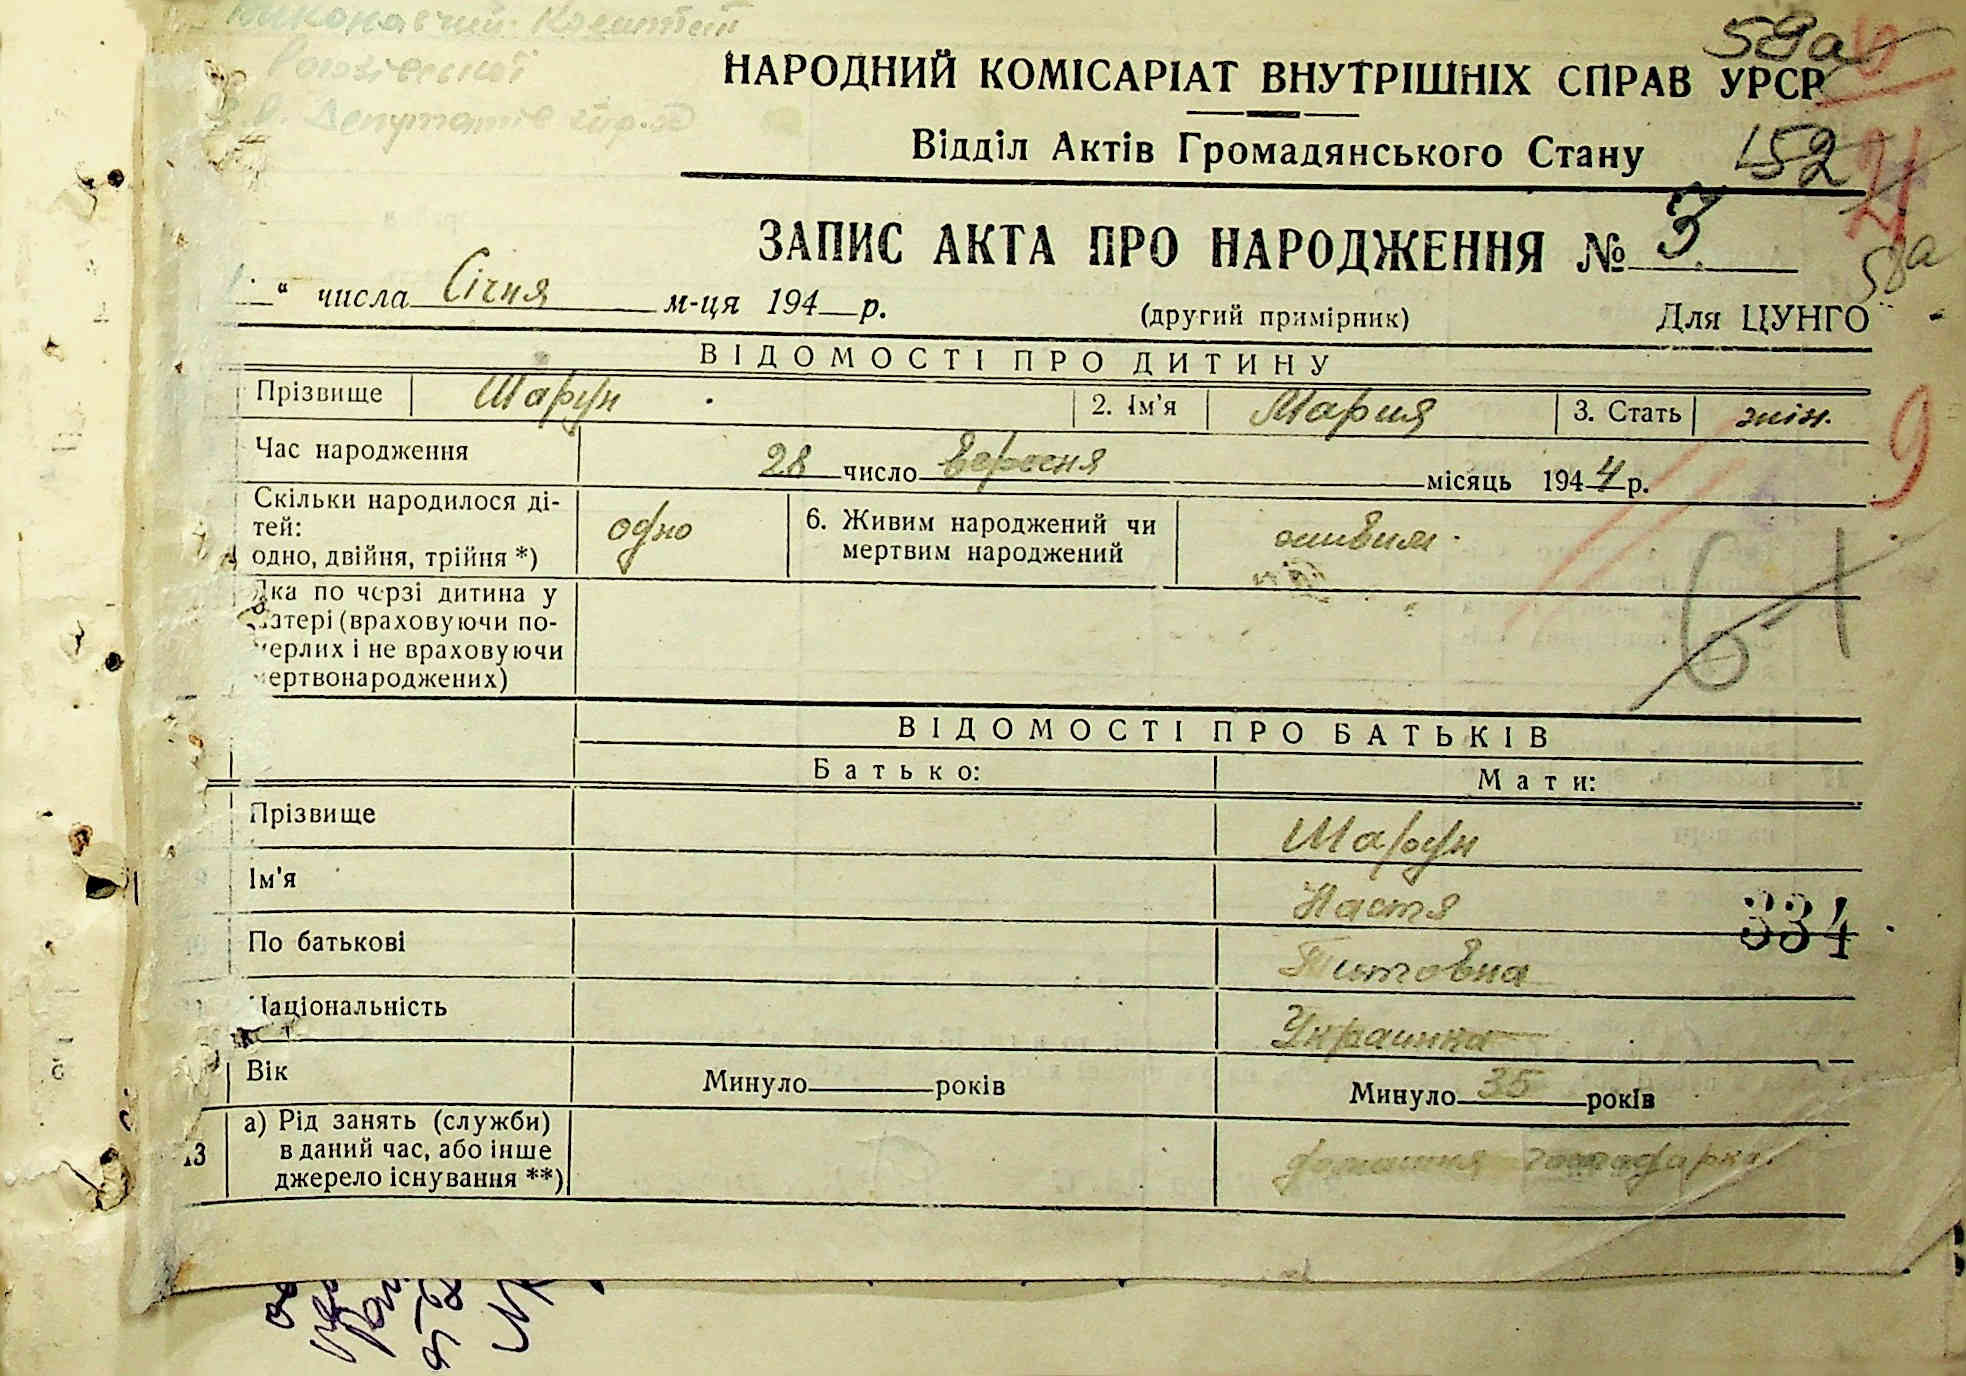 Виконавчий Комітет
Депутатів
58а
НАРОДНИЙ КОМІСАРІАТ ВНУТРІШНІХ СПРАВ УРСР
Відділ Актів Громадянського Стану
152
21
ЗАПИС АКТА ПРО НАРОДЖЕННЯ № 3
58а
“ числа Січня м-ця 194 р.
(другий примірник)
Для ЦУНГО
ВІДОМОСТІ ПРО ДИТИНУ
Прізвище Шарун 2. Ім'я Мария 3. Стать жін.
9
Час народження 28 число вересня місяць 1944 р.
Скільки народилося ді-
тей:
одно, двійня, трійня *)
одно
6. Живим народжений чи
мертвим народжений
живим
Яка по черзі дитина у
матері (враховуючи по-
мерлих і не враховуючи
мертвонароджених)
61
ВІДОМОСТІ ПРО БАТЬКІВ
Батько: Мати:
Прізвище Шарун
Ім'я Настя
334
По батькові Титовна
Національність Украинка
Вік Минуло років Минуло 35 років
13 а) Рід занять (служби)
в даний час, або інше
джерело існування **)
домашня господарка.